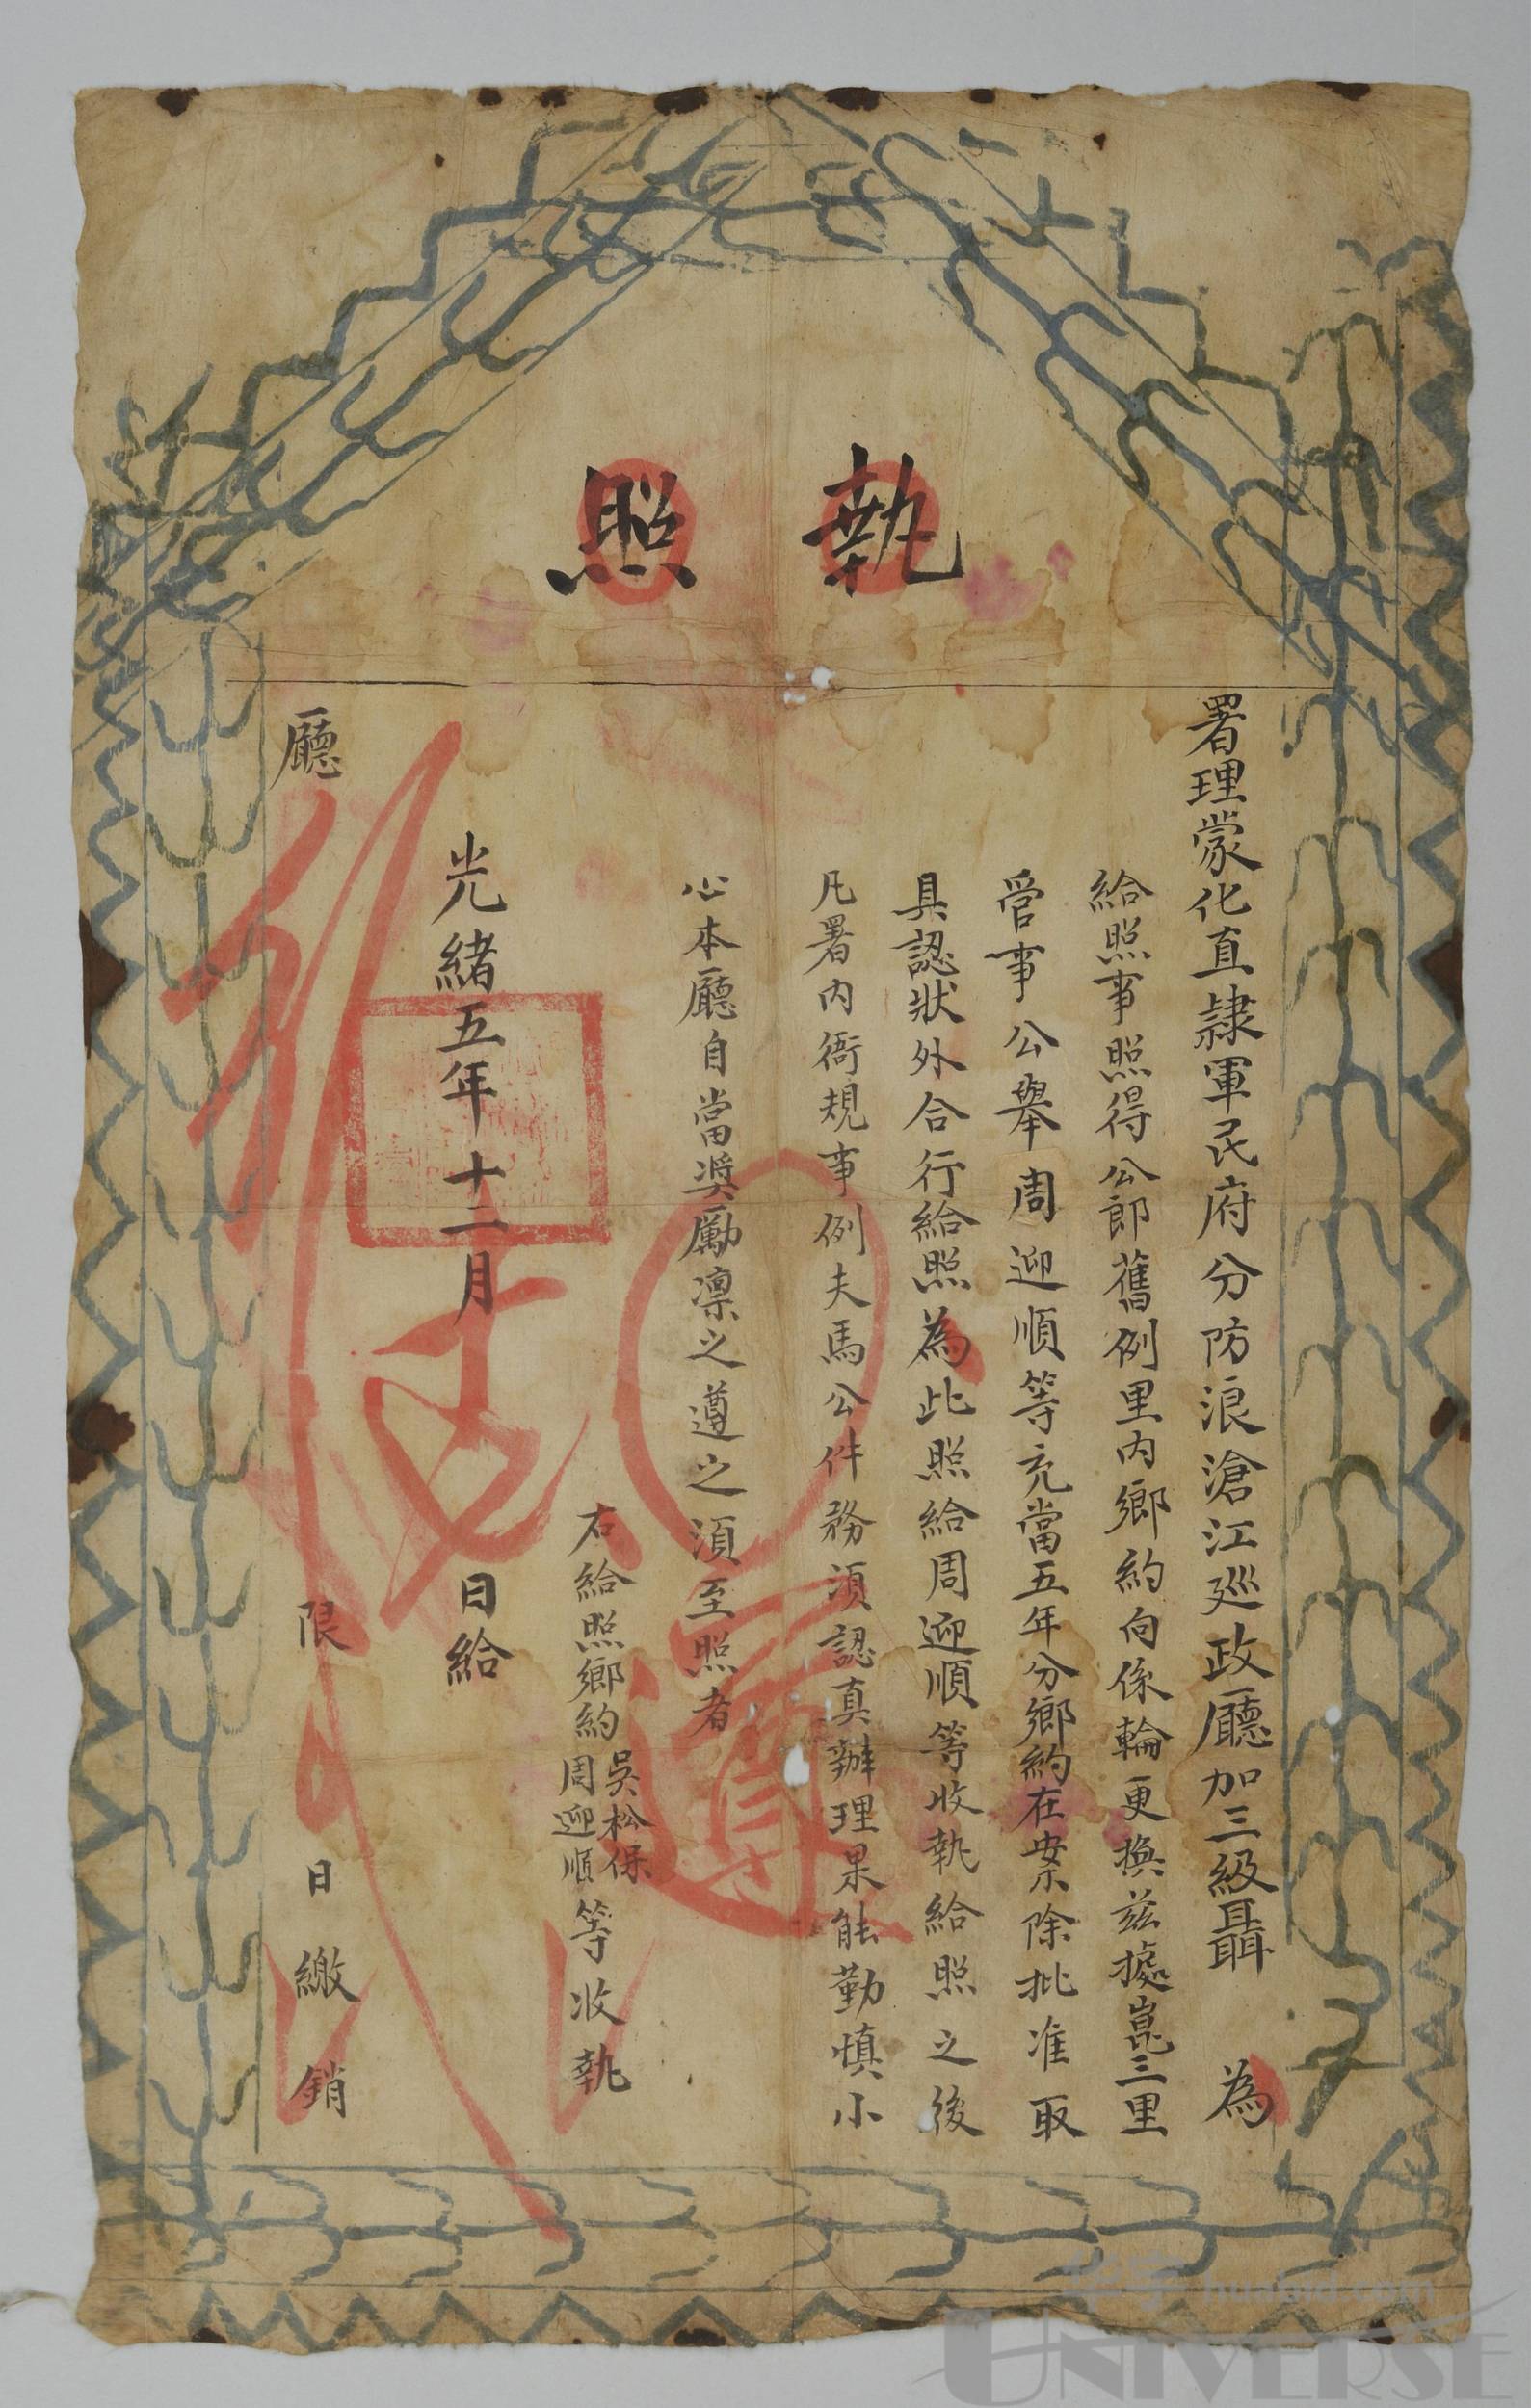 執照
署理蒙化直隸軍民府分防浪滄江廵政廳加三級聶　為
給照事照得公郎舊例里內鄉約向係輪更換兹據嵬三里
管事公舉周迎順等充當五年分鄉約在案除批准取
具認狀外合行給照為此照給周迎順等收執給照之後
凡署內衙規事例夫馬公件務須認真辦理果能勤慎小
心本廳自當奨厲凛之遵之須至照者
右給照鄉約吳松保周迎順等收執
光緒五年十二月　日給
廳　限　日繳銷
遵
华宇 huabid.com
UNIVERSE